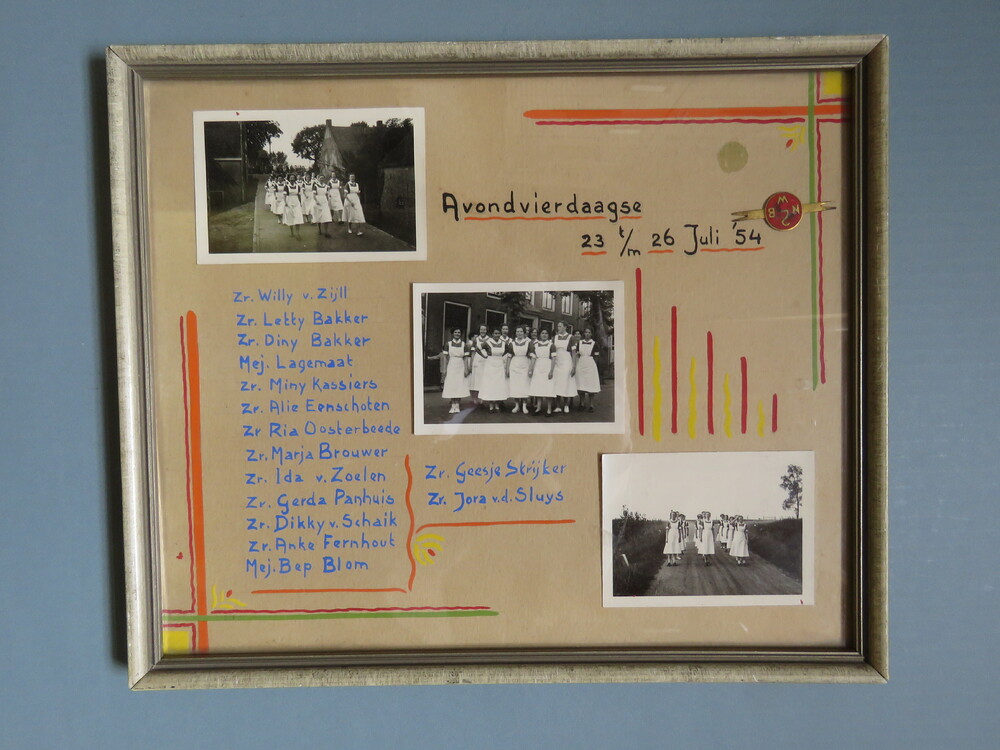 Avondvierdaagse
23 t/m 26 Juli '54
Zr. Willy v. Zijll
Zr. Letty Bakker
Zr. Diny Bakker
Mej. Lagemaat
Zr. Miny Kassiers
Zr. Alie Eenschoten
Zr Ria Oosterbeede
Zr. Marja Brouwer
Zr. Ida v. Zoelen
Zr. Gerda Panhuis
Zr. Dikky v. Schaik
Zr. Anke Fernhout
Mej. Bep Blom
Zr. Geesje Strijker
Zr. Jora v.d. Sluys